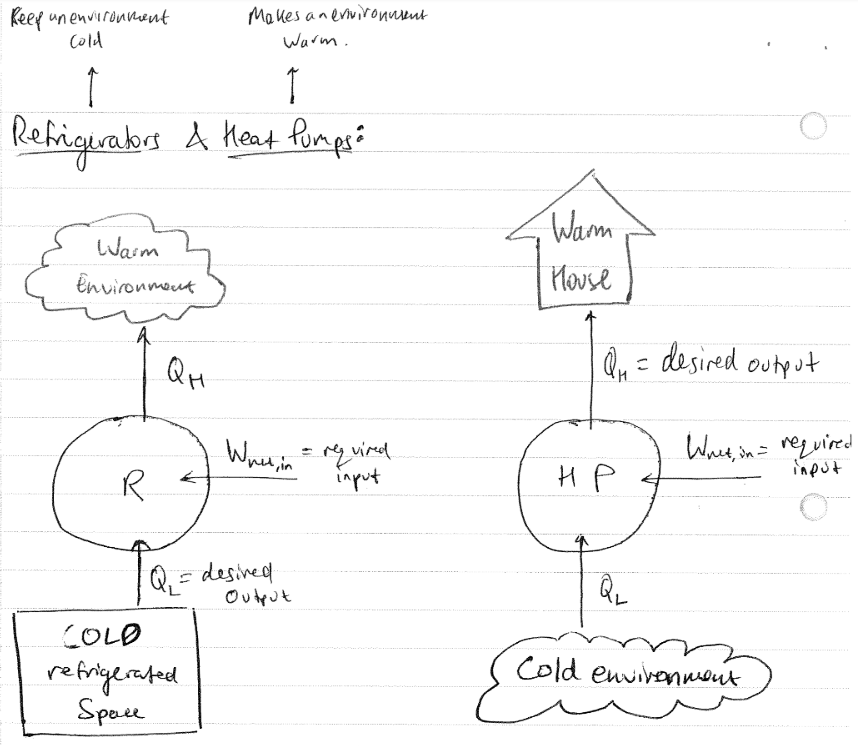 Keep an environment
Cold
Makes an environment
Warm.
Refrigirators & Heat Pumps:
Warm
Environment
Q_H
R
W_net,in = required
input
Q_L = desired
Output
COLD
refrigerated
Space
Warm
House
Q_H = desired output
HP
W_net,in = required
input
Q_L
Cold environment